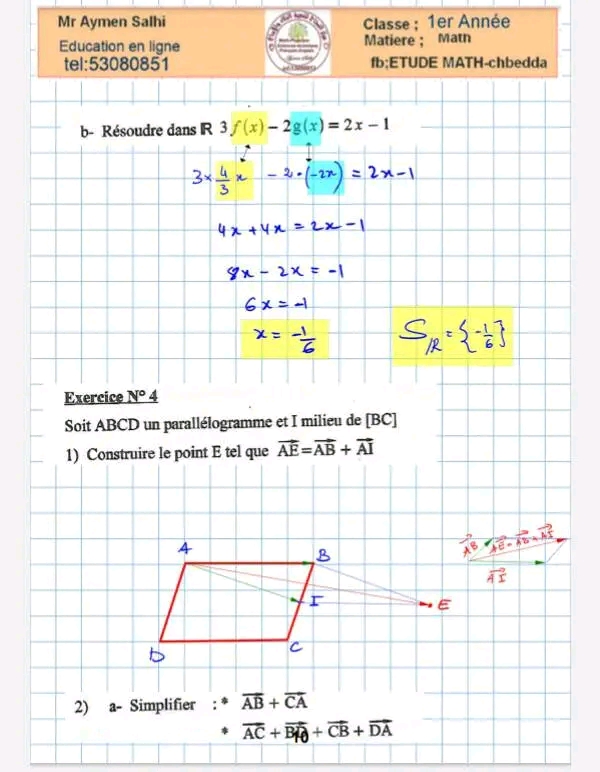 Mr Aymen Salhi
Education en ligne
tel:53080851
Classe ; 1er Année
Matiere ; Math
fb;ETUDE MATH-chbedda
b- Résoudre dans ℝ 3f(x) − 2g(x) = 2x − 1
3 × 4/3 x − 2 · (−2x) = 2x − 1
4x + 4x = 2x − 1
8x − 2x = −1
6x = −1
x = −1/6
S/ℝ = {−1/6}
Exercice N° 4
Soit ABCD un parallélogramme et I milieu de [BC]
1) Construire le point E tel que A͞E⃗ = AB⃗ + AI⃗
AB⃗ AE⃗ = AB⃗ + AI⃗
AI⃗
A B
I E
D C
2) a- Simplifier : * AB⃗ + CA⃗
* AC⃗ + BD⃗ + CB⃗ + DA⃗
10